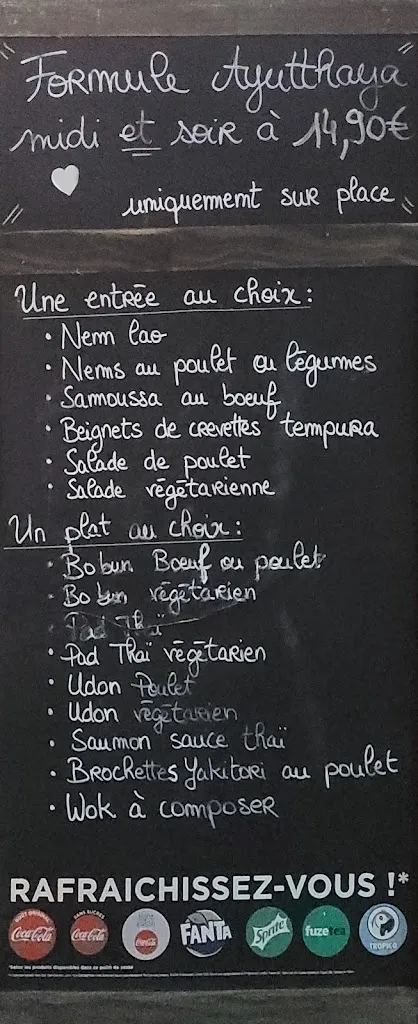 Formule Ayutthaya
midi et soir à 14,90€
uniquement sur place
Une entrée au choix :
• Nem lao
• Nems au poulet ou légumes
• Samoussa au boeuf
• Beignets de crevettes tempura
• Salade de poulet
• Salade végétarienne
Un plat au choix :
• Bo bun Boeuf ou poulet
• Bo bun végétarien
• Pad Thaï
• Pad Thaï végétarien
• Udon Poulet
• Udon végétarien
• Saumon sauce thaï
• Brochettes Yakitori au poulet
• Wok à composer
RAFRAICHISSEZ-VOUS !*
GOÛT ORIGINAL SANS SUCRES
Coca-Cola Coca-Cola Coca-Cola FANTA Sprite fuzetea TROPICO
*Selon les produits disponibles dans ce point de vente